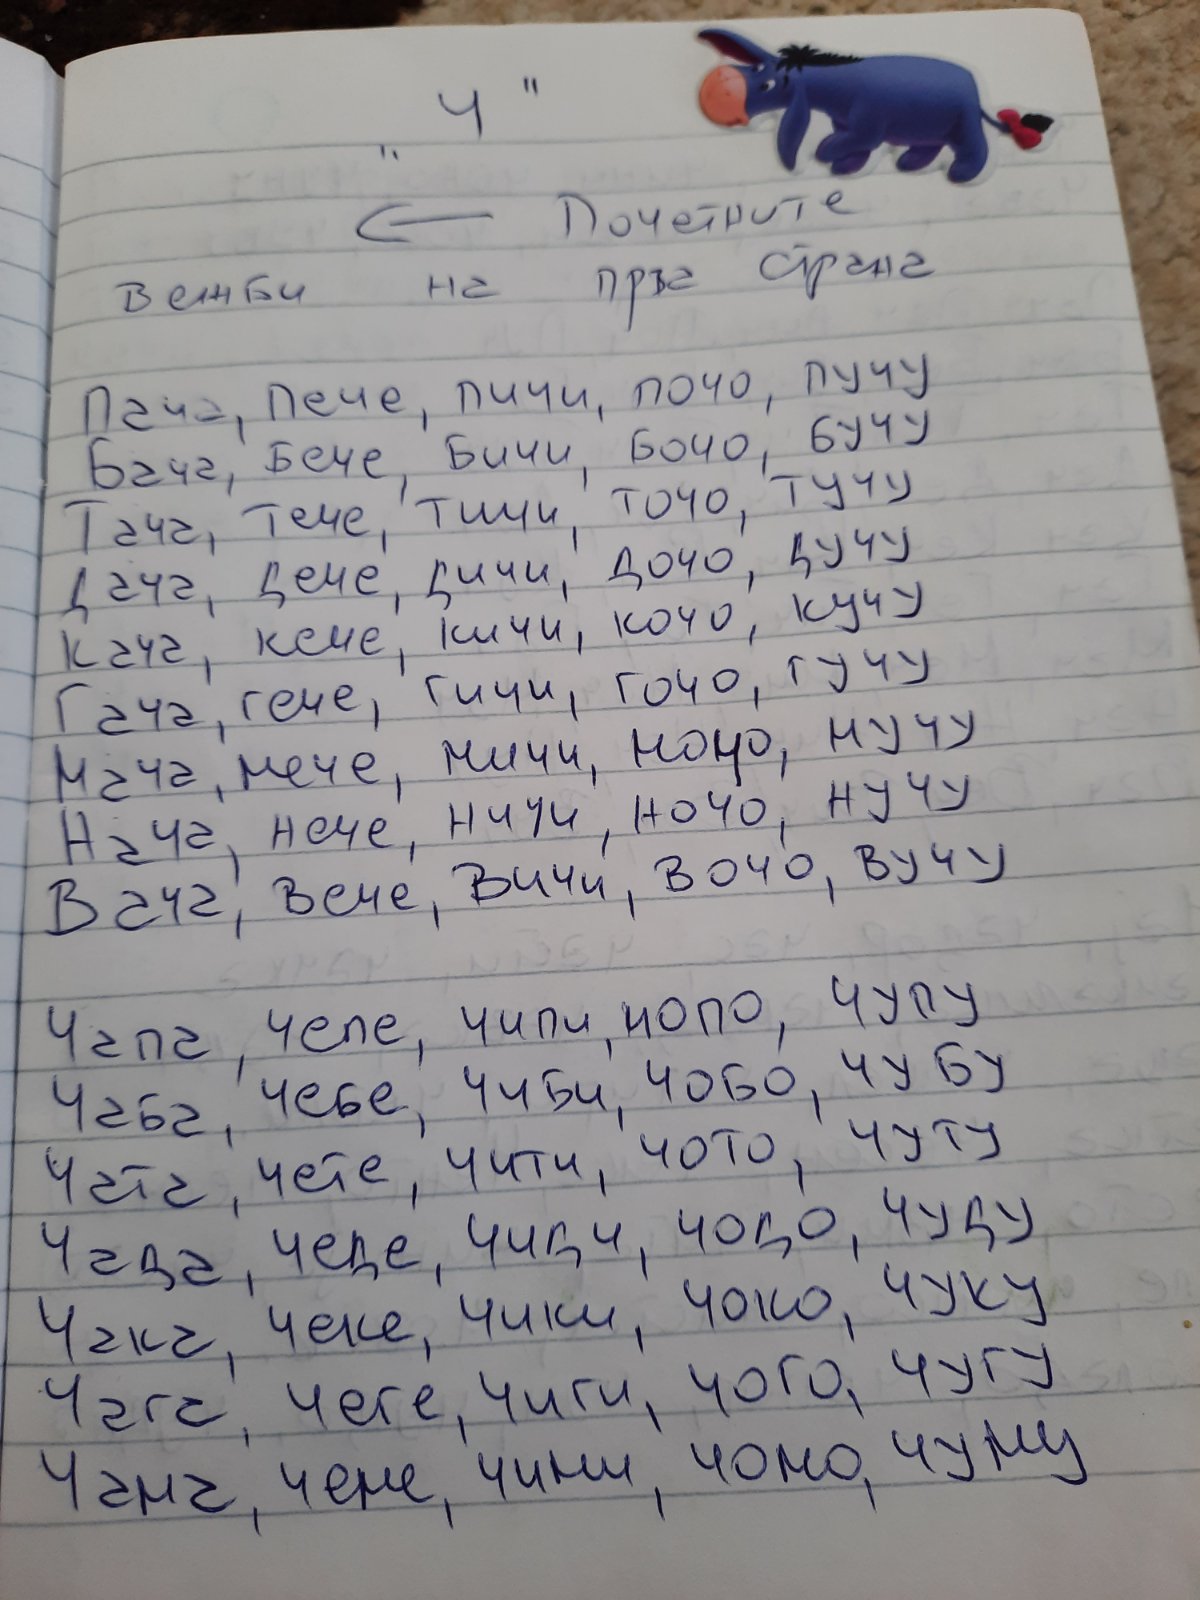 „Ч"
← Почетните
вежби на прва страна
Пача, пече, пичи, почо, пучу
Бача, бече, бичи, бочо, бучу
Тача, тече, тичи, точо, тучу
Дача, дече, дичи, дочо, дучу
Кача, кече, кичи, кочо, кучу
Гача, гече, гичи, гочо, гучу
Мача, мече, мичи, мочо, мучу
Нача, нече, ничи, ночо, нучу
Вача, вече, вичи, вочо, вучу
Чапа, чепе, чипи, чопо, чупу
Чаба, чебе, чиби, чобо, чубу
Чата, чете, чити, чото, чуту
Чада, чеде, чиди, чодо, чуду
Чака, чеке, чики, чоко, чуку
Чага, чеге, чиги, чого, чугу
Чама, чеме, чими, чомо, чуму